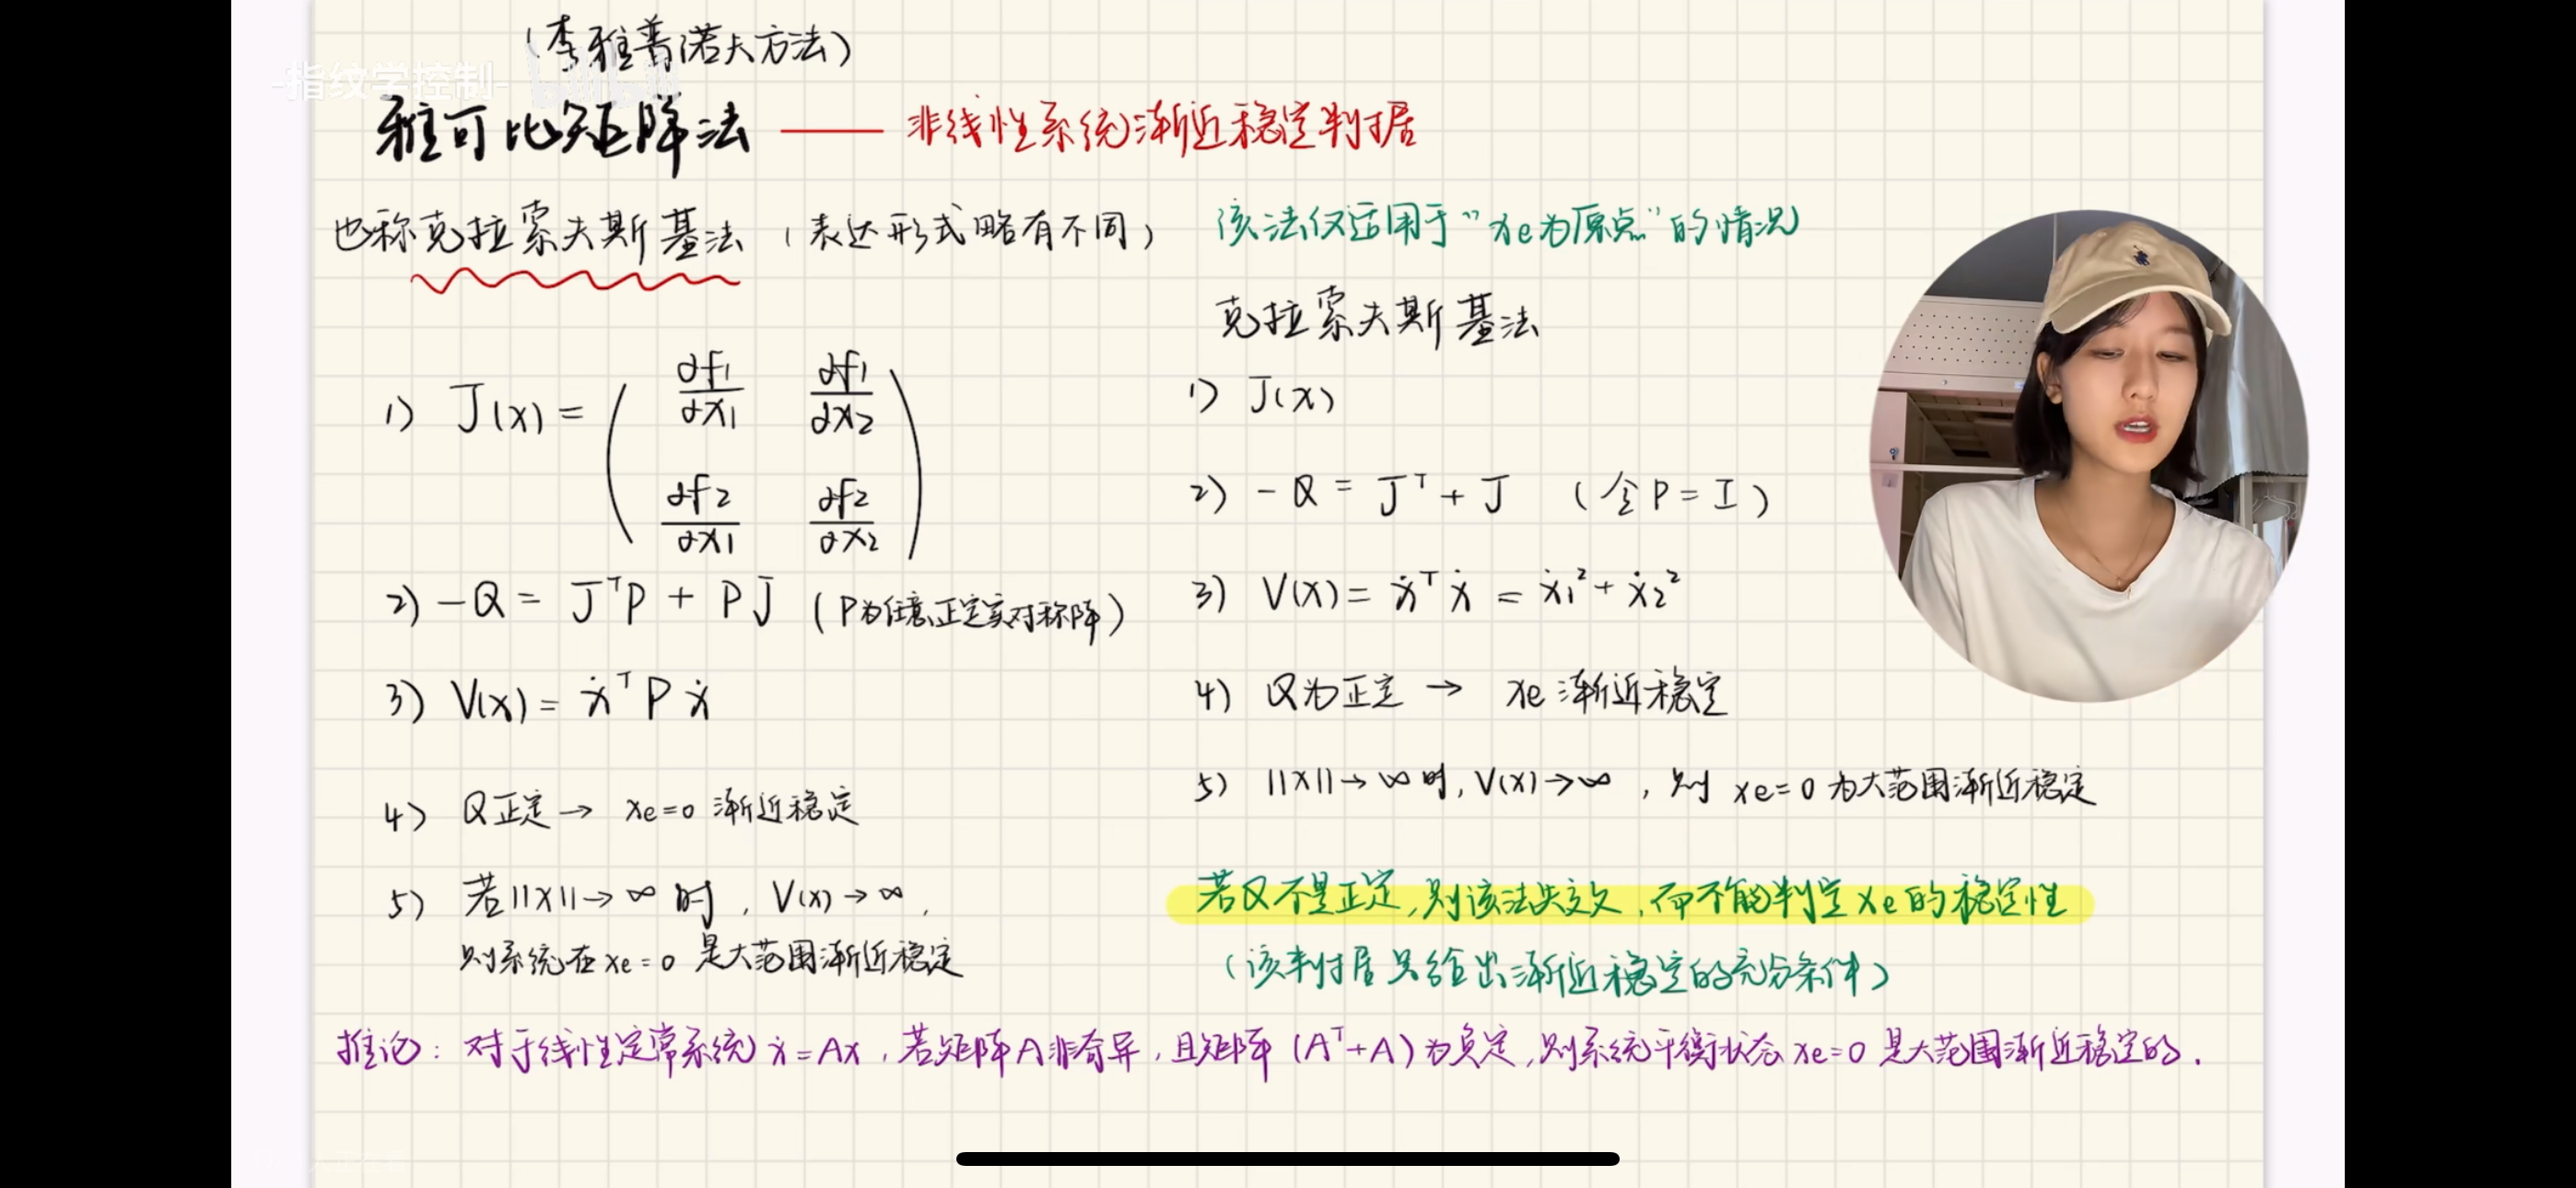 (李雅普诺夫方法)
-指纹学控制- bilibili
雅可比矩阵法 —— 非线性系统渐近稳定判据
也称克拉索夫斯基法 (表达形式略有不同)
1) J(x) = ( ∂f1/∂x1 ∂f1/∂x2
∂f2/∂x1 ∂f2/∂x2 )
2) -Q = JᵀP + PJ (P为任意正定实对称阵)
3) V(x) = ẋᵀPẋ
4) Q正定 → xe=0 渐近稳定
5) 若||x||→∞时, V(x)→∞,
则系统在xe=0 是大范围渐近稳定
该法仅适用于“xe为原点”的情况
克拉索夫斯基法
1) J(x)
2) -Q = Jᵀ + J (令P=I)
3) V(x) = ẋᵀẋ = ẋ1² + ẋ2²
4) Q为正定 → xe渐近稳定
5) ||x||→∞时, V(x)→∞, 则 xe=0 为大范围渐近稳定
若Q不是正定,则该法失效,而不能判定xe的稳定性
(该判据只给出渐近稳定的充分条件)
推论: 对于线性定常系统 ẋ=Ax, 若矩阵A非奇异, 且矩阵 (Aᵀ+A) 为负定, 则系统平衡状态 xe=0 是大范围渐近稳定的.